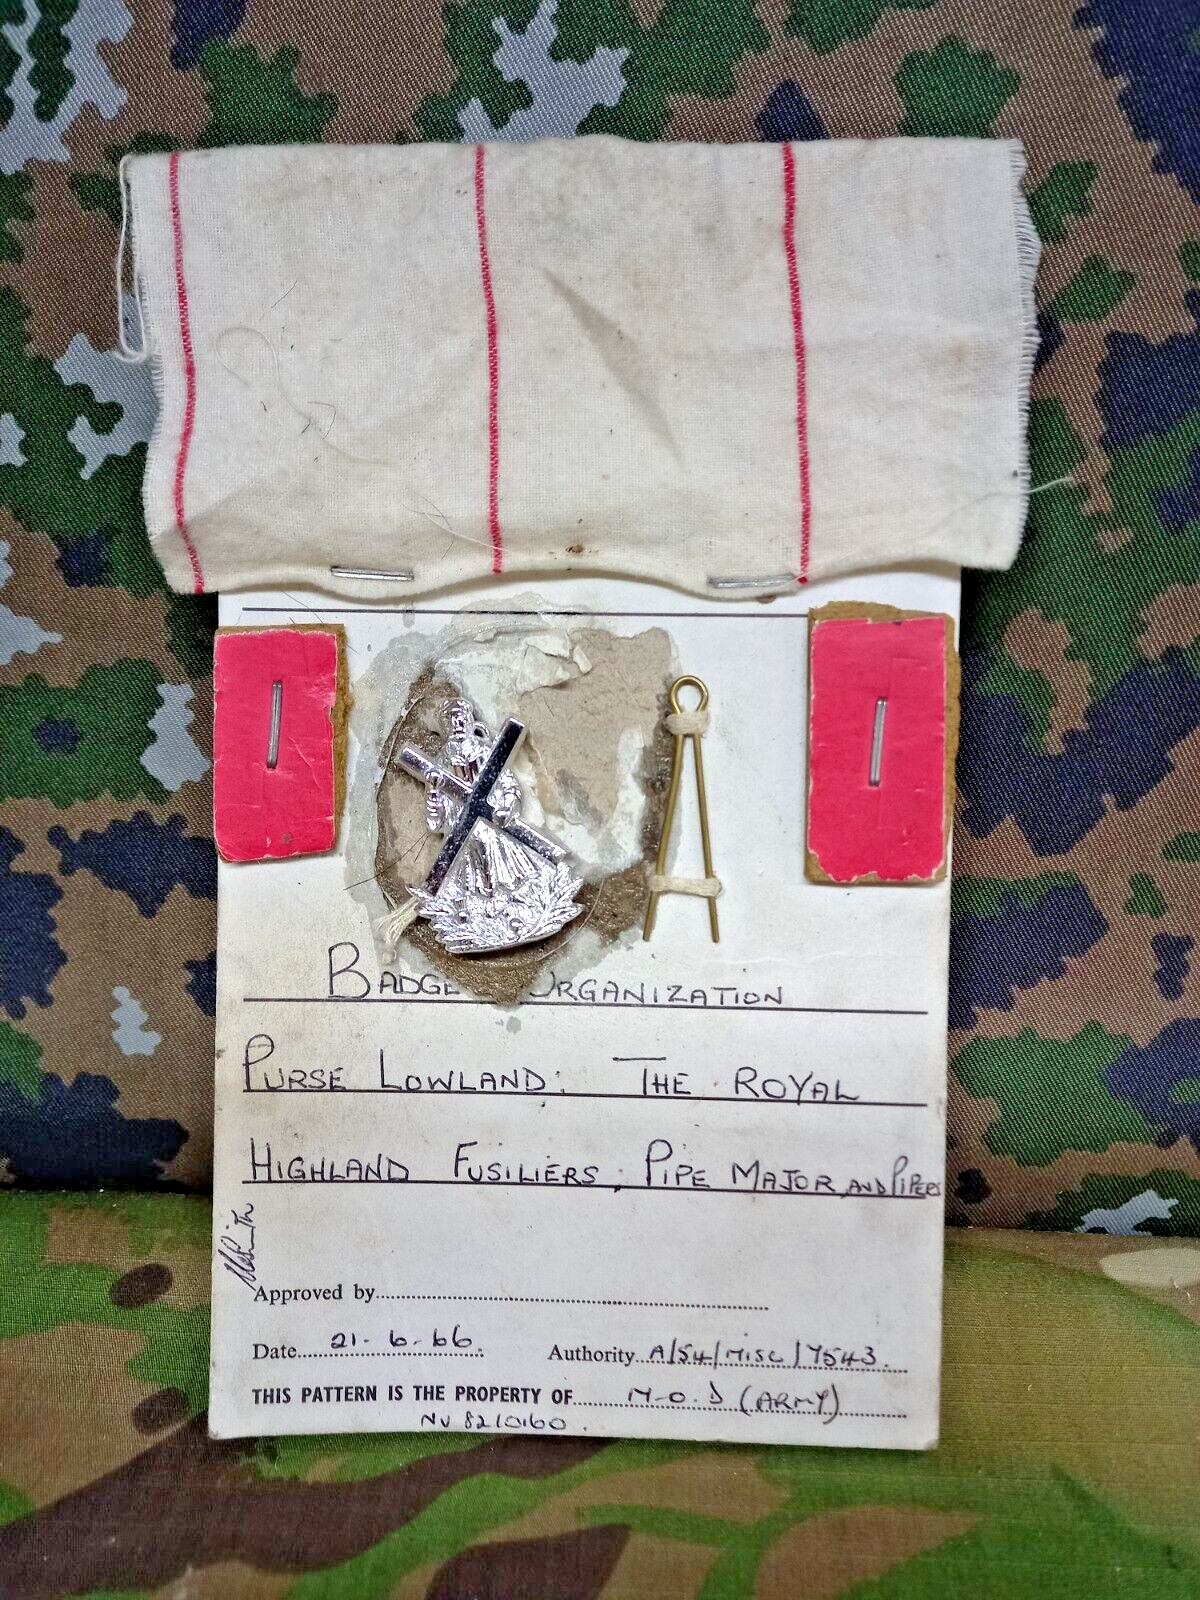 BADGE ORGANIZATION
PURSE LOWLAND: THE ROYAL
HIGHLAND FUSILIERS; PIPE MAJOR AND PIPERS
Approved by
Date 21-6-66. Authority A/54/MISC/7543.
THIS PATTERN IS THE PROPERTY OF M.O.D (ARMY)
NV 8210160.